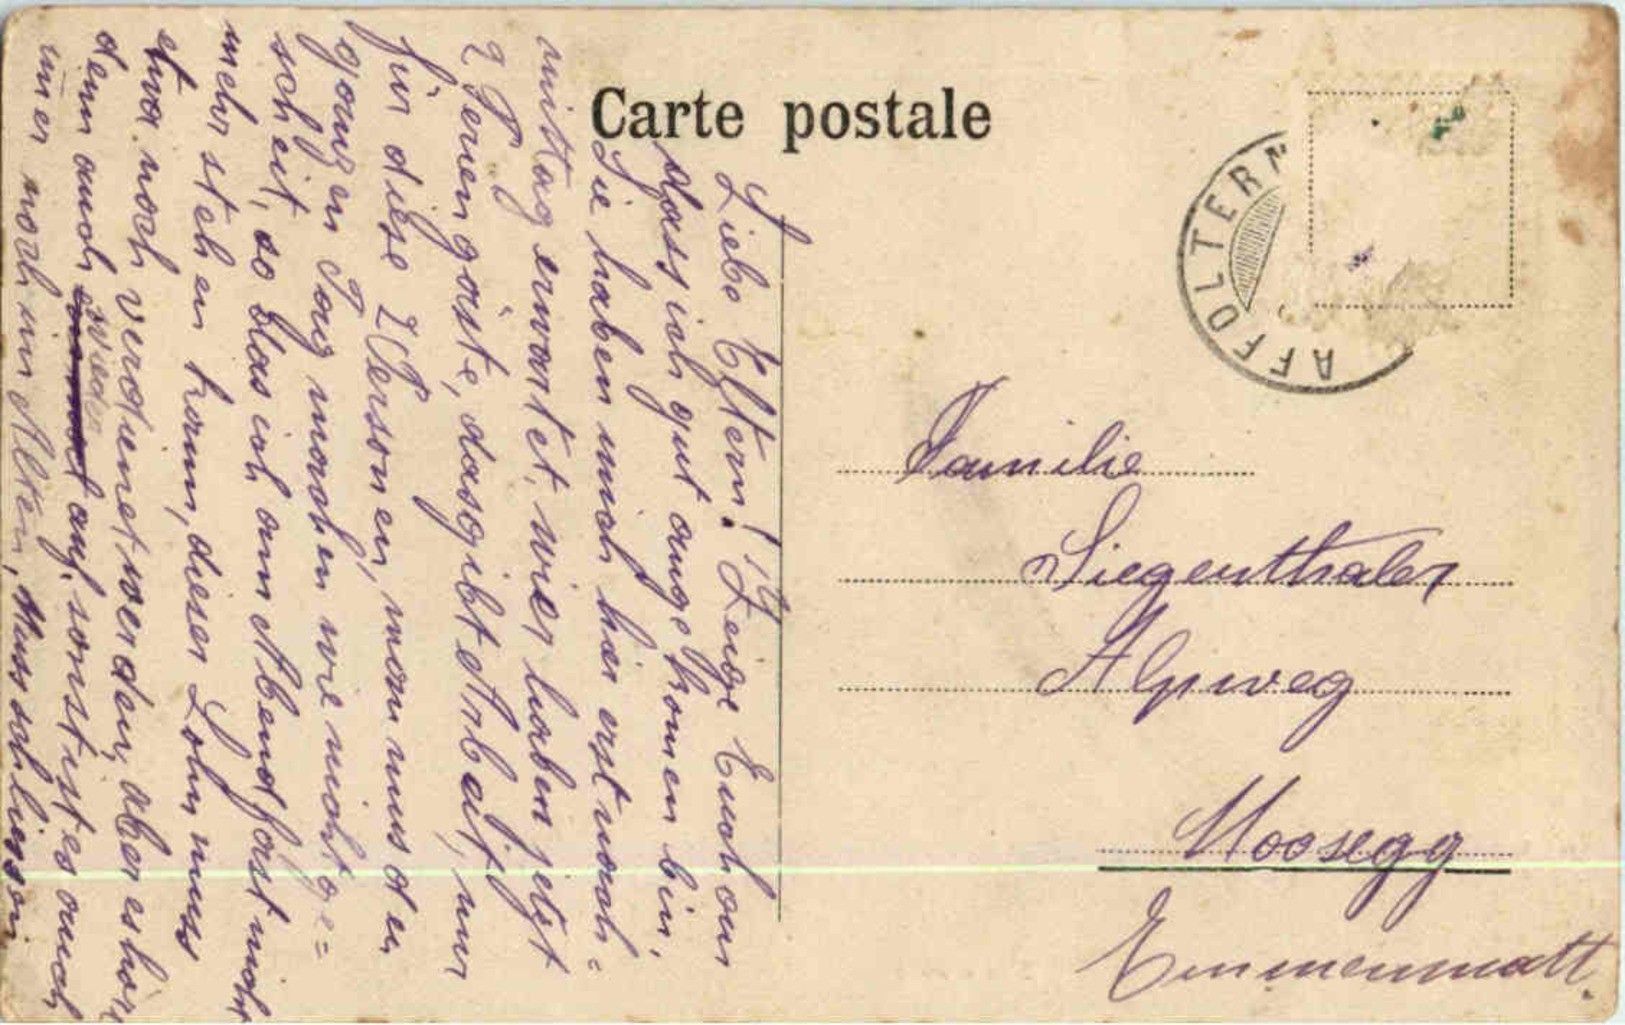 Carte postale
AFFOLTERN
Liebe Eltern! Zeige Euch an
dass ich gut angekomen bin,
Sie haben mich hier erst nach=
mittag erwartet, wier haben jetzt
2 P. Feriengäste, das gibt Arbeit, nur
für diese 2 Personen, man mus den
ganzen Tag machen wie nicht ge=
scheit, so das ich am Abend fast nicht
mehr stehen kann, dieser Lohn muss
etwa noch verdienet werden, aber es hört
denn auch wieder auf, sonst ist es auch
imer noch im Alten, Muss schliessen
Familie
Siegenthaler
Alpweg
Moosegg
Emmenmatt.